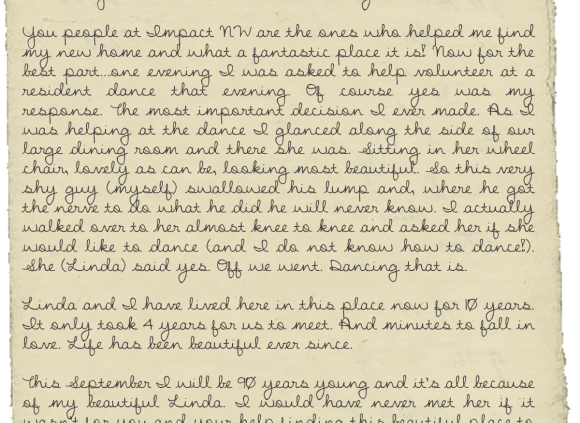 You people at Impact NW are the ones who helped me find
my new home and what a fantastic place it is! Now for the
best part...one evening I was asked to help volunteer at a
resident dance that evening. Of course yes was my
response. The most important decision I ever made. As I
was helping at the dance I glanced along the side of our
large dining room and there she was. Sitting in her wheel
chair, lovely as can be, looking most beautiful. So this very
shy guy (myself) swallowed his lump and, where he got
the nerve to do what he did he will never know. I actually
walked over to her almost knee to knee and asked her if she
would like to dance (and I do not know how to dance!).
She (Linda) said yes. Off we went. Dancing that is.
Linda and I have lived here in this place now for 10 years.
It only took 4 years for us to meet. And minutes to fall in
love. Life has been beautiful ever since.
This September I will be 90 years young and it's all because
of my beautiful Linda. I would have never met her if it
wasn't for you and your help finding this beautiful place to